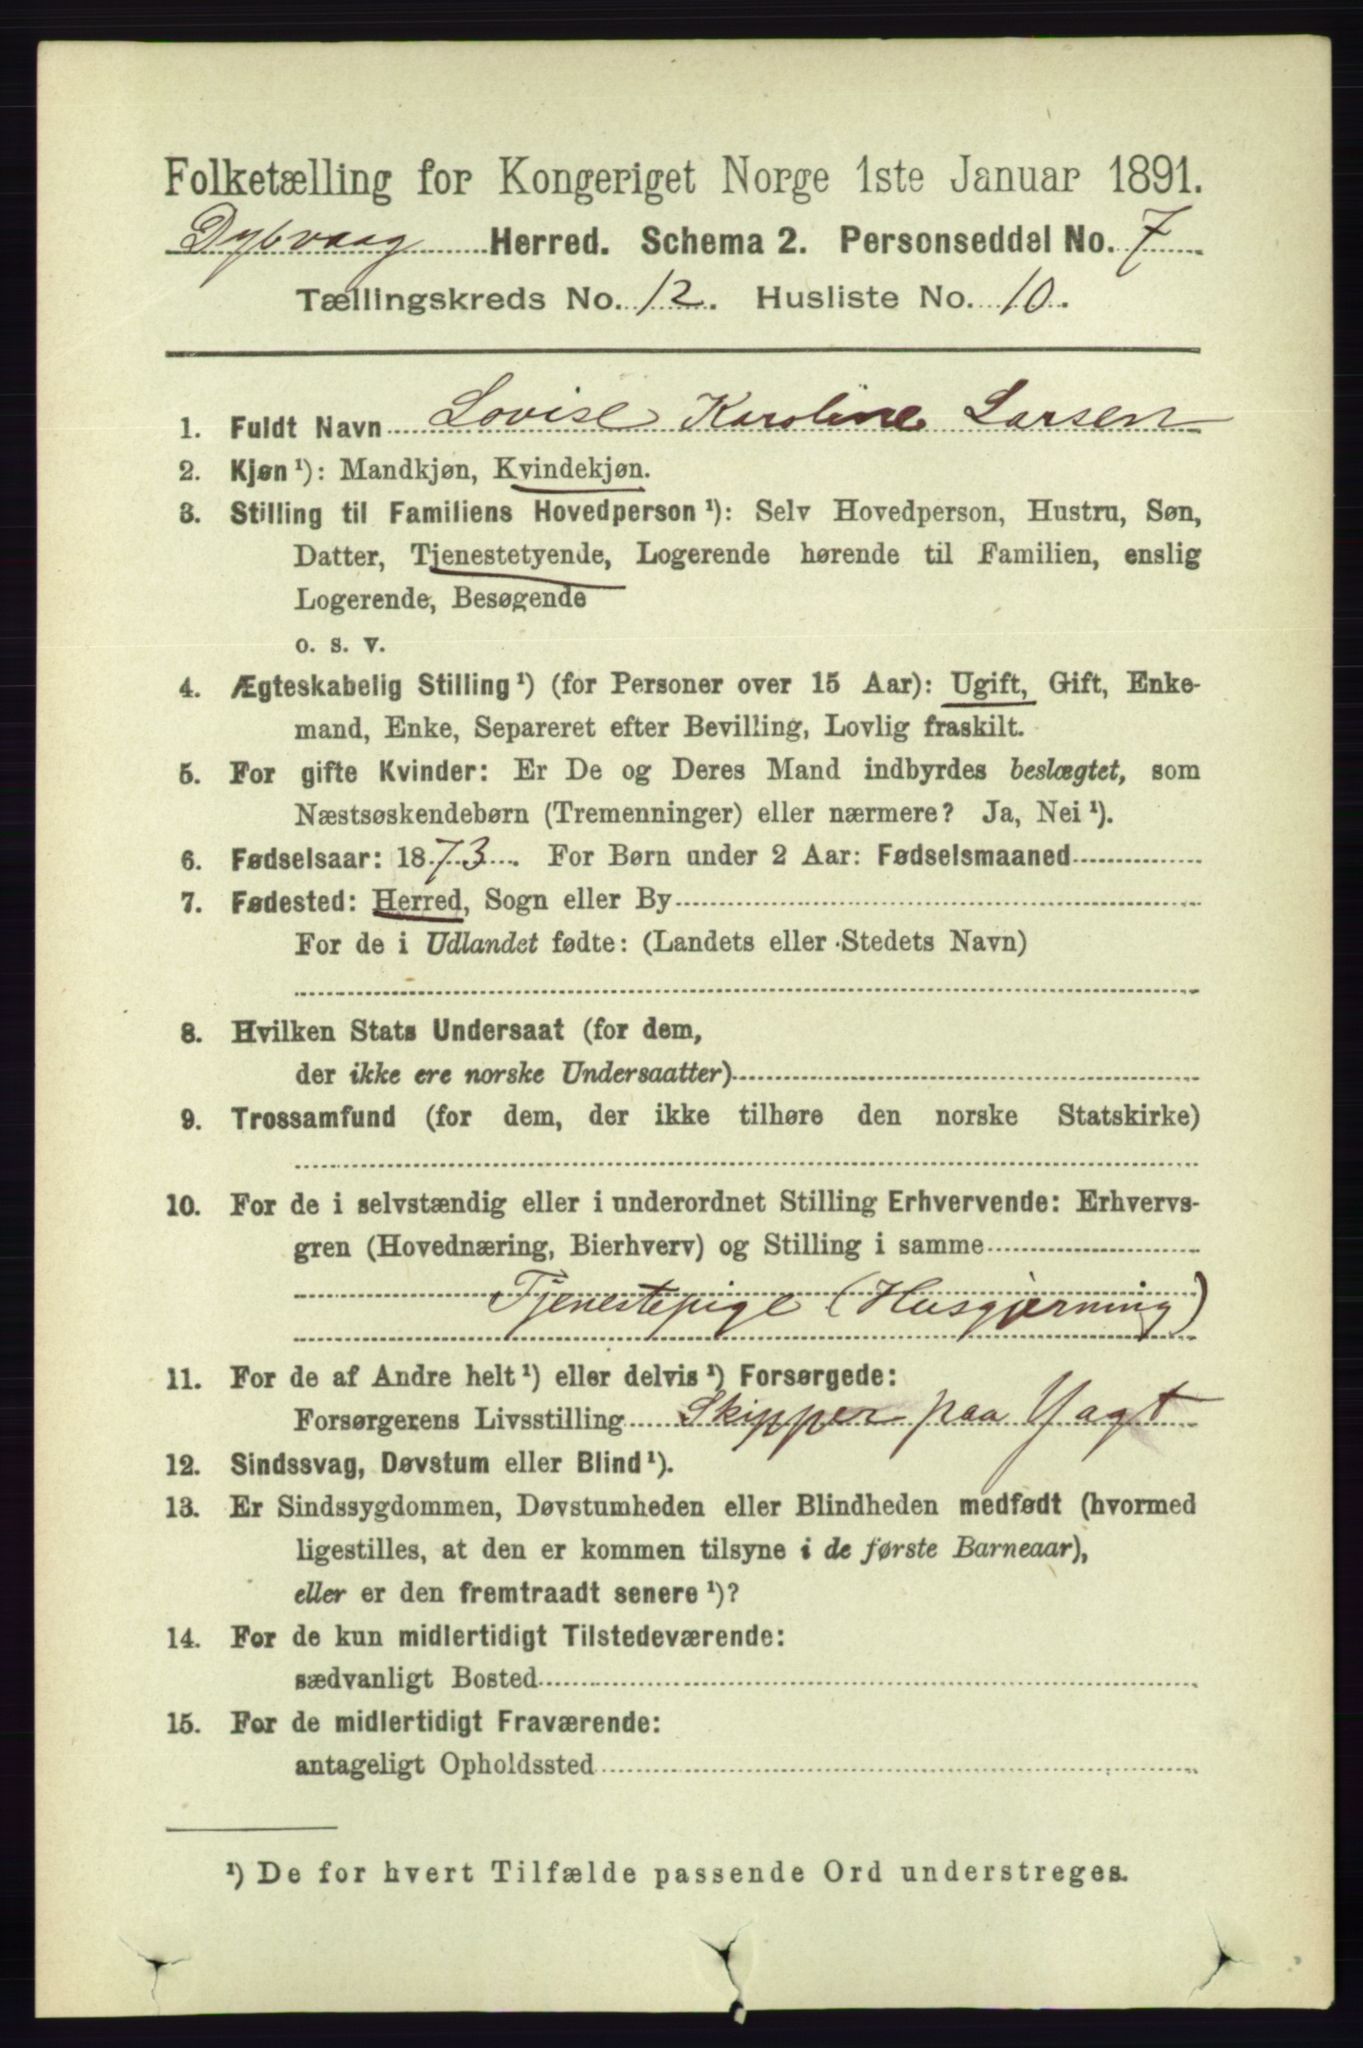 Folketælling for Kongeriget Norge 1ste Januar 1891.
Dybvaag Herred. Schema 2. Personseddel No. 7
Tællingskreds No. 12. Husliste No. 10.
1. Fuldt Navn Lovise Karoline Larsen
2. Kjøn ¹): Mandkjøn, Kvindekjøn.
3. Stilling til Familiens Hovedperson ¹): Selv Hovedperson, Hustru, Søn,
Datter, Tjenestetyende, Logerende hørende til Familien, enslig
Logerende, Besøgende
o. s. v.
4. Ægteskabelig Stilling ¹) (for Personer over 15 Aar): Ugift, Gift, Enke-
mand, Enke, Separeret efter Bevilling, Lovlig fraskilt.
5. For gifte Kvinder: Er De og Deres Mand indbyrdes beslægtet, som
Næstsøskendebørn (Tremenninger) eller nærmere? Ja, Nei ¹).
6. Fødselsaar: 1873. For Børn under 2 Aar: Fødselsmaaned
7. Fødested: Herred, Sogn eller By
For de i Udlandet fødte: (Landets eller Stedets Navn)
8. Hvilken Stats Undersaat (for dem,
der ikke ere norske Undersaatter)
9. Trossamfund (for dem, der ikke tilhøre den norske Statskirke)
10. For de i selvstændig eller i underordnet Stilling Erhvervende: Erhvervs-
gren (Hovednæring, Bierhverv) og Stilling i samme
Tjenestepige (Husgjerning)
11. For de af Andre helt ¹) eller delvis ¹) Forsørgede:
Forsørgerens Livsstilling Skipper paa Yagt
12. Sindssvag, Døvstum eller Blind ¹).
13. Er Sindssygdommen, Døvstumheden eller Blindheden medfødt (hvormed
ligestilles, at den er kommen tilsyne i de første Barneaar),
eller er den fremtraadt senere ¹)?
14. For de kun midlertidigt Tilstedeværende:
sædvanligt Bosted
15. For de midlertidigt Fraværende:
antageligt Opholdssted
¹) De for hvert Tilfælde passende Ord understreges.